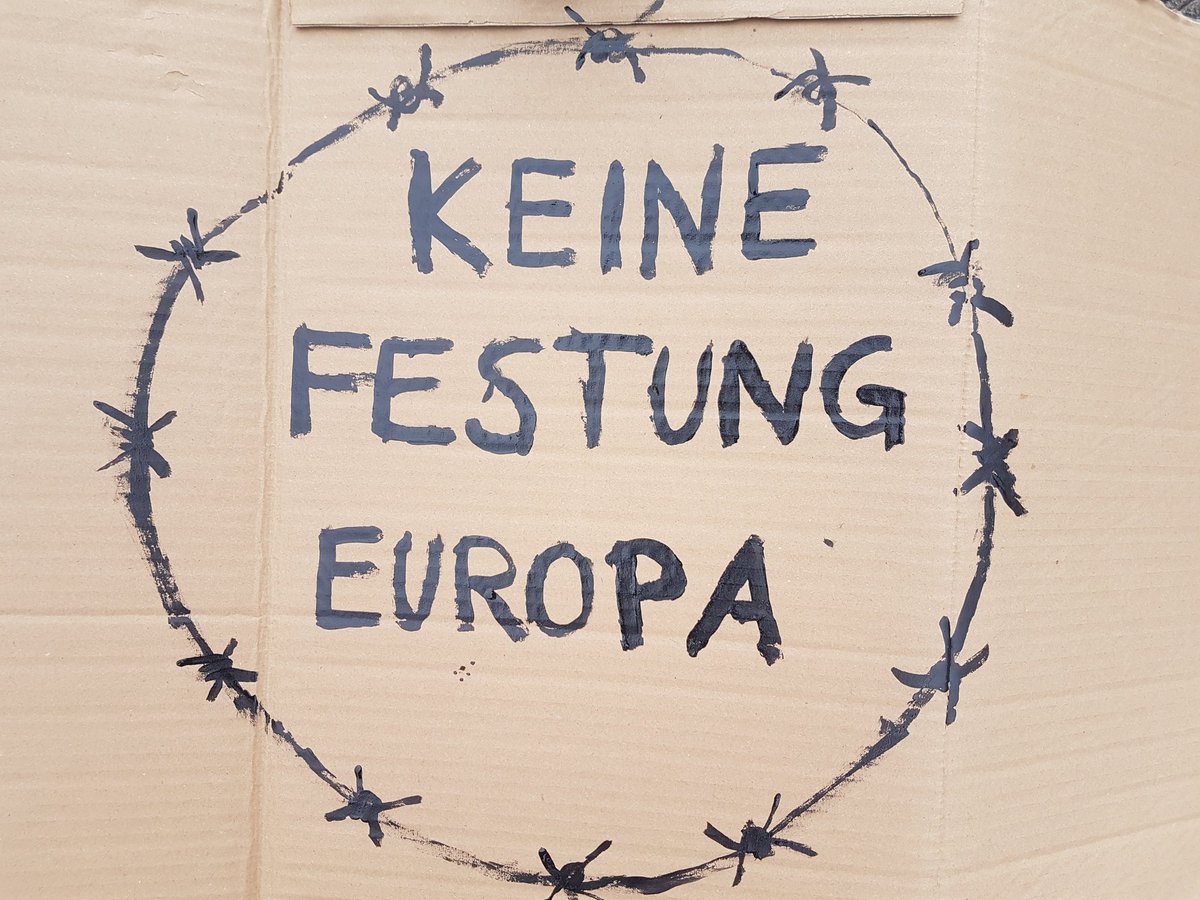 KEINE
FESTUNG
EUROPA